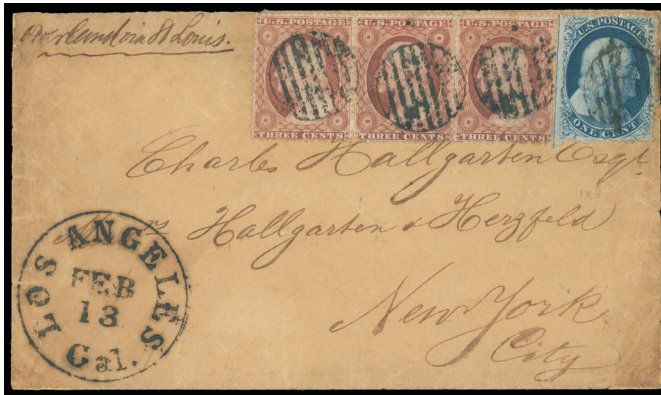 Overland via St Louis.
U.S. POSTAGE
THREE CENTS
U.S. POSTAGE
THREE CENTS
U.S. POSTAGE
THREE CENTS
U.S. POSTAGE
ONE CENT
Charles Hallgarten Esqr.
Hallgarten & Herzfeld
New York
City
LOS ANGELES
FEB
13
Cal.